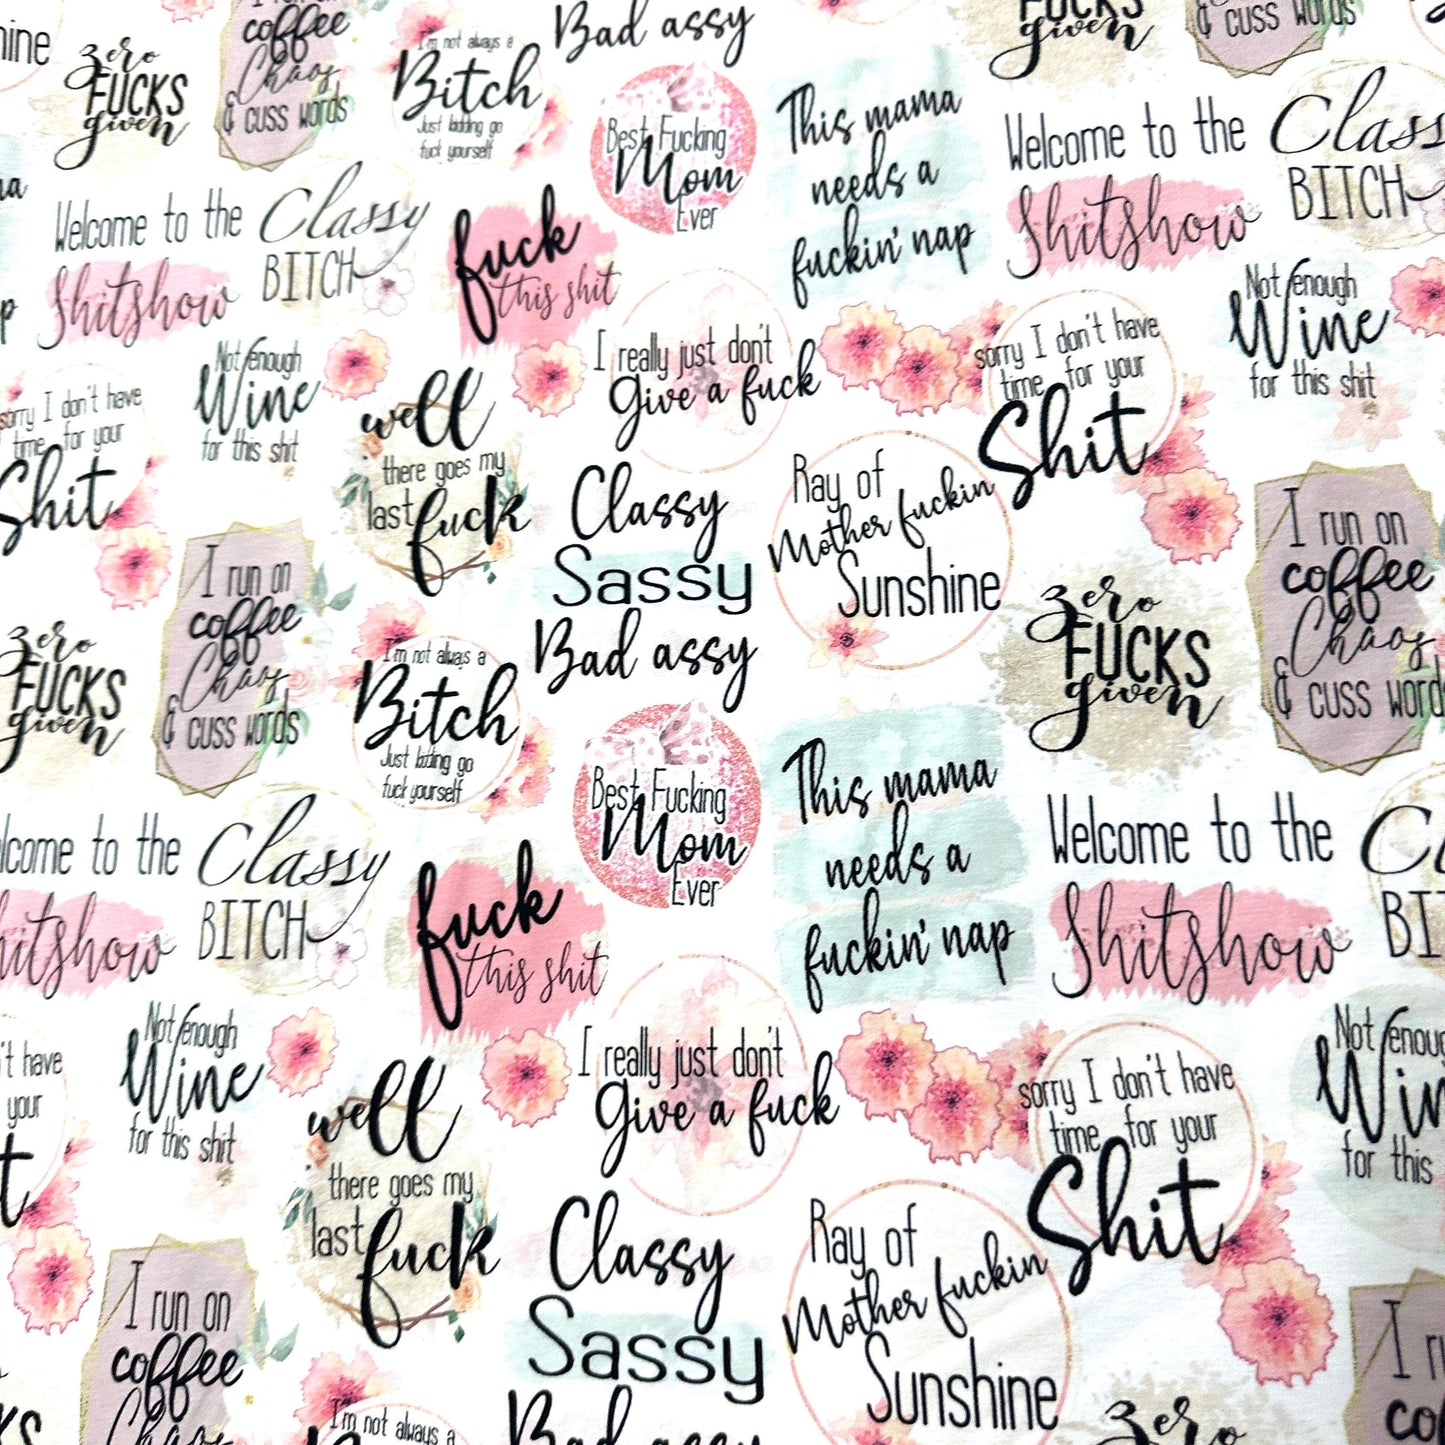 hine
zero
FUCKS
given
coffee
Chaos
& cuss words
I'm not always a
Bitch
Just kidding go
fuck yourself
Bad assy
Best Fucking
Mom
Ever
This mama
needs a
fuckin' nap
FUCKS
given
& cuss words
Welcome to the
Shitshow
Classy
BITCH
Welcome to the
Shitshow
Classy
BITCH
fuck
this shit
Not enough
Wine
for this shit
I really just don't
Give a fuck
sorry I don't have
time for your
Shit
Not enough
Wine
for this shit
sorry I don't have
time for your
Shit
well
there goes my
last fuck
Classy
Sassy
Bad assy
Ray of
Mother fuckin
Sunshine
I run on
coffee
Chaos
& cuss words
zero
FUCKS
given
I run on
coffee
Chaos
& cuss words
zero
FUCKS
given
I'm not always a
Bitch
Just kidding go
fuck yourself
Best Fucking
Mom
Ever
This mama
needs a
fuckin' nap
Welcome to the
Shitshow
Cl
BI
lcome to the
hitshow
Classy
BITCH
fuck
this shit
Not enough
Wine
for this shit
I really just don't
Give a fuck
sorry I don't have
time for your
Shit
Not enoug
Win
for this
't have
your
t
well
there goes my
last fuck
Classy
Sassy
Bad assy
Ray of
Mother fuckin
Sunshine
I run on
coffee
Chaos
I'm not always a
zero
I ru
cof